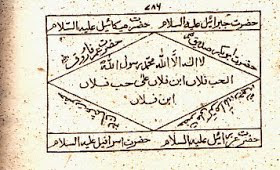 ۷۸۶
حضرت جبرائیل علیہ السلام حضرت میکائیل علیہ السلام
حضرت ابوبکر صدیق حضرت عمر فاروق
لا الہ الا اللہ محمد رسول اللہ
الحب فلاں ابن فلاں علی حب فلاں
ابن فلاں
حضرت عزرائیل علیہ السلام حضرت اسرافیل علیہ السلام